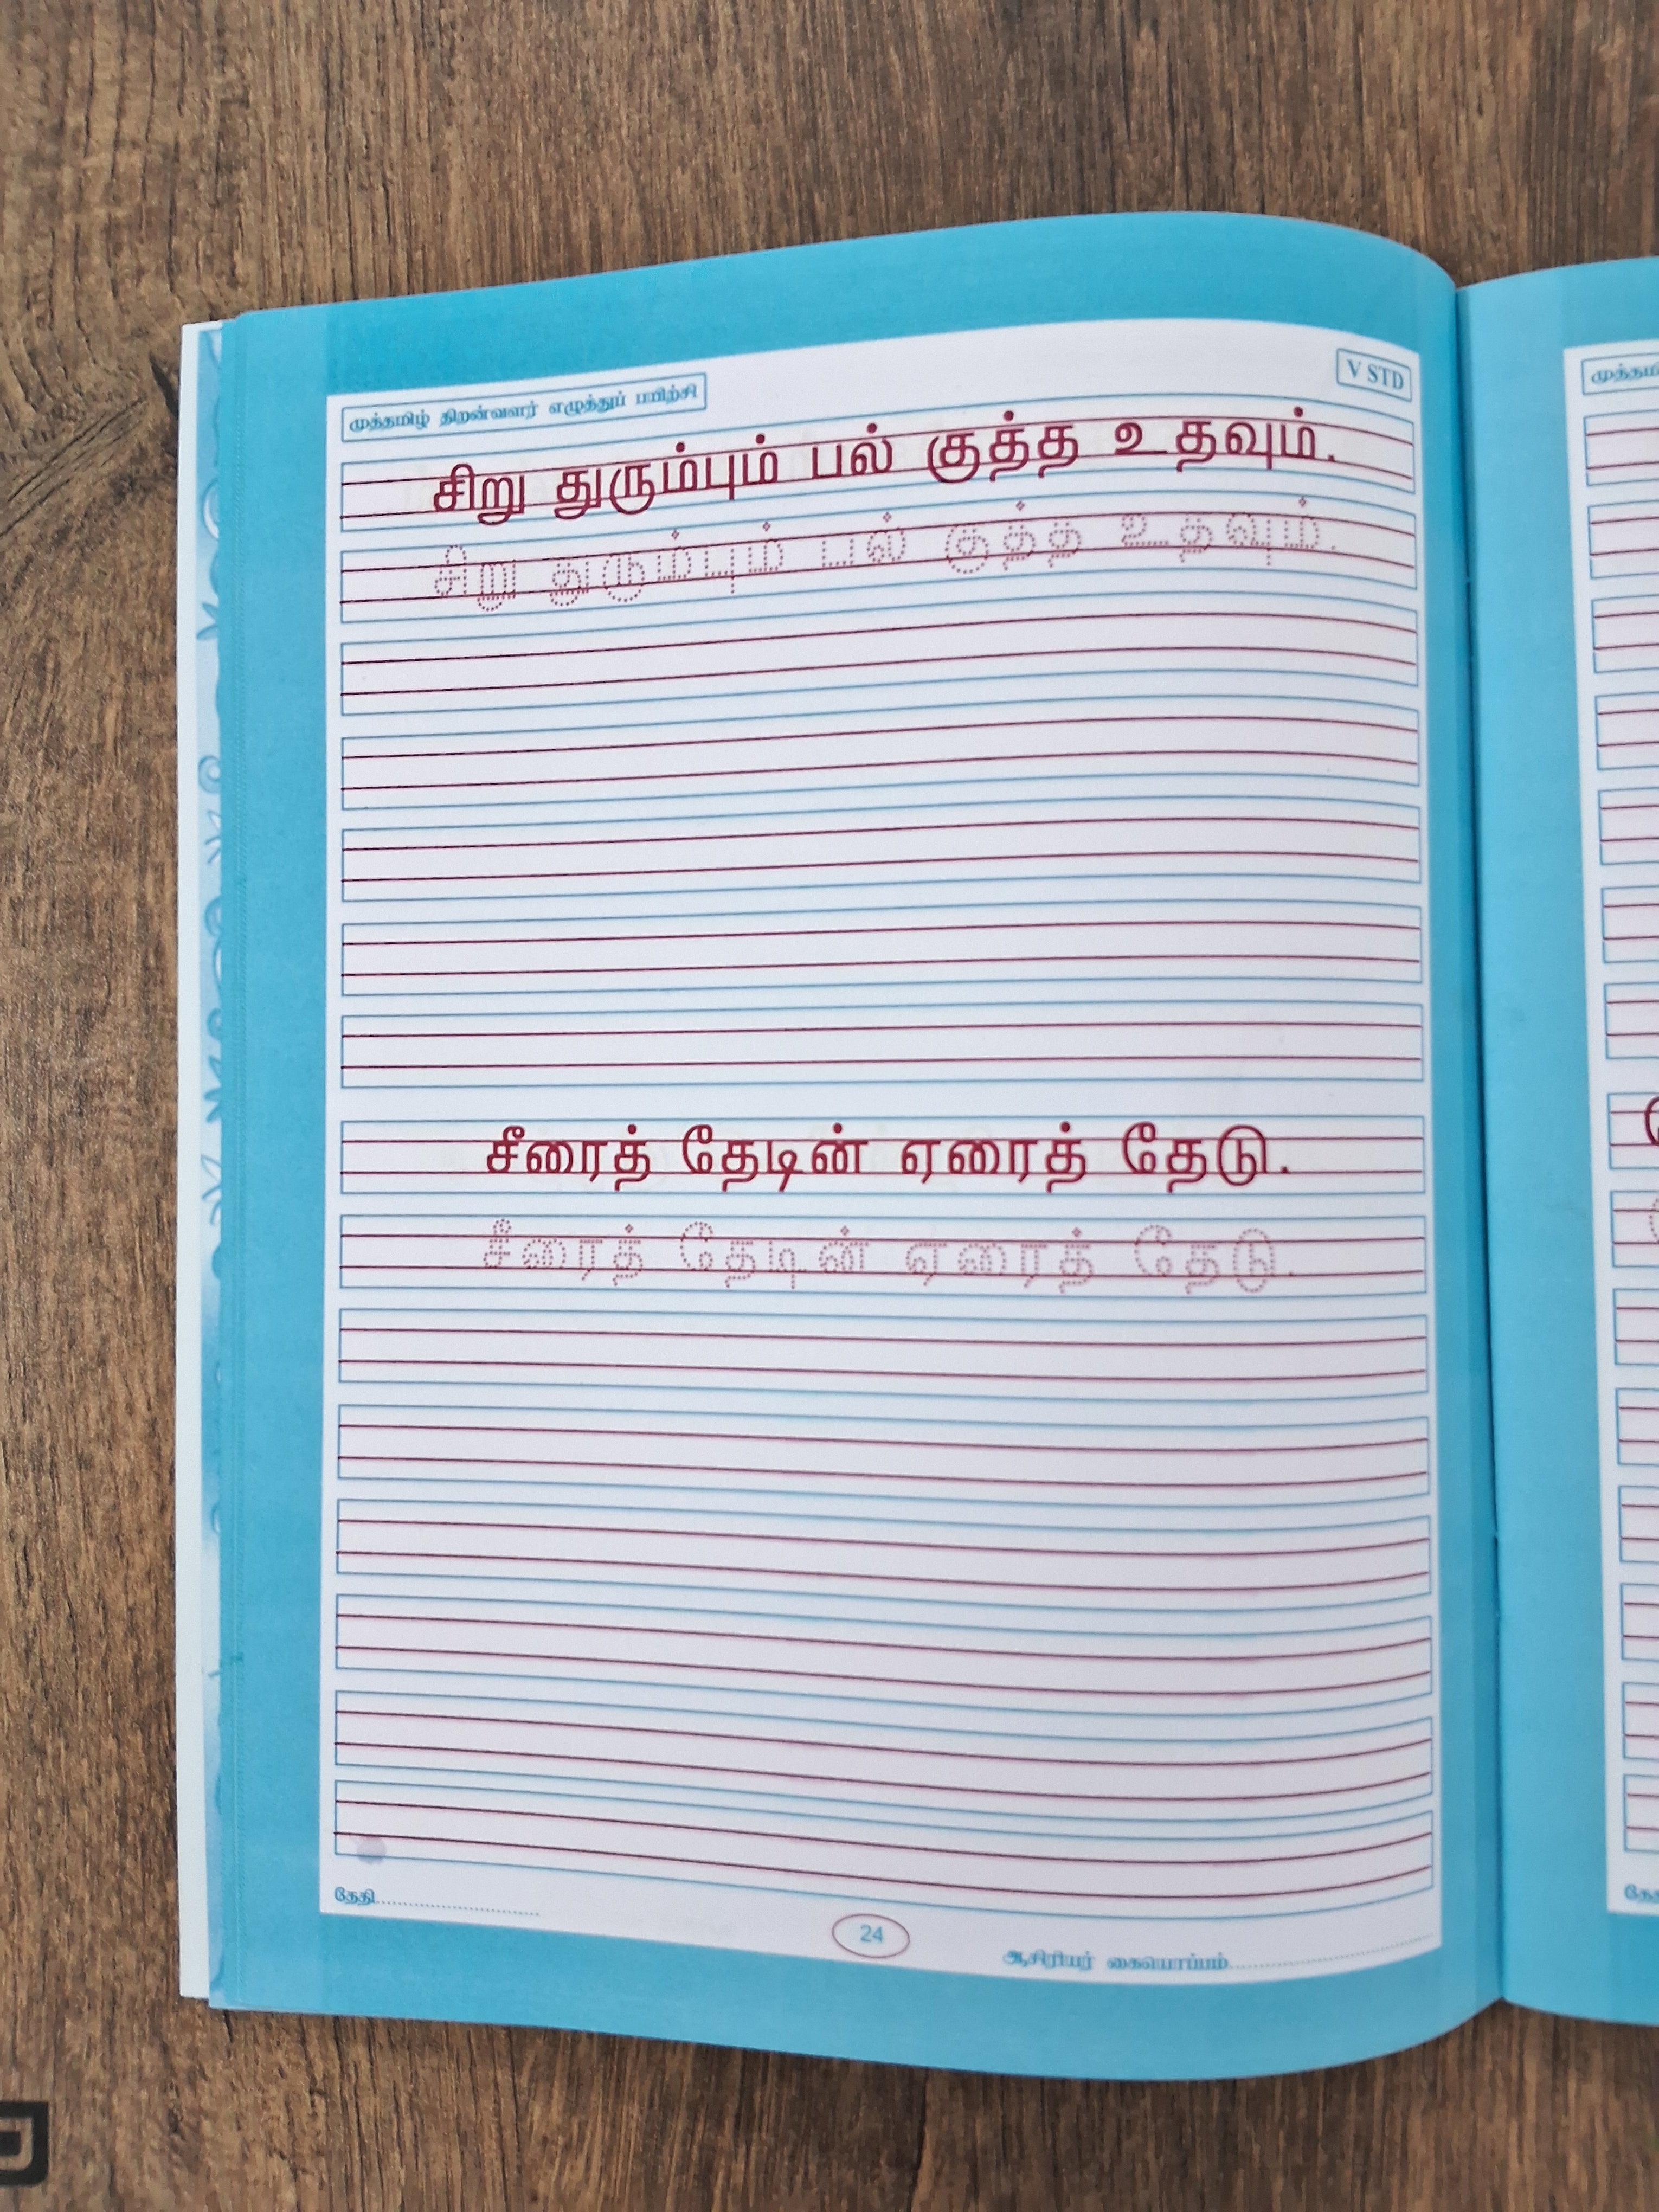 முத்தமிழ் திறன்வளர் எழுத்துப் பயிற்சி
V STD
சிறு துரும்பும் பல் குத்த உதவும்.
சிறு துரும்பும் பல் குத்த உதவும்.
சீரைத் தேடின் ஏரைத் தேடு.
சீரைத் தேடின் ஏரைத் தேடு.
தேதி
24
ஆசிரியர் கையொப்பம்